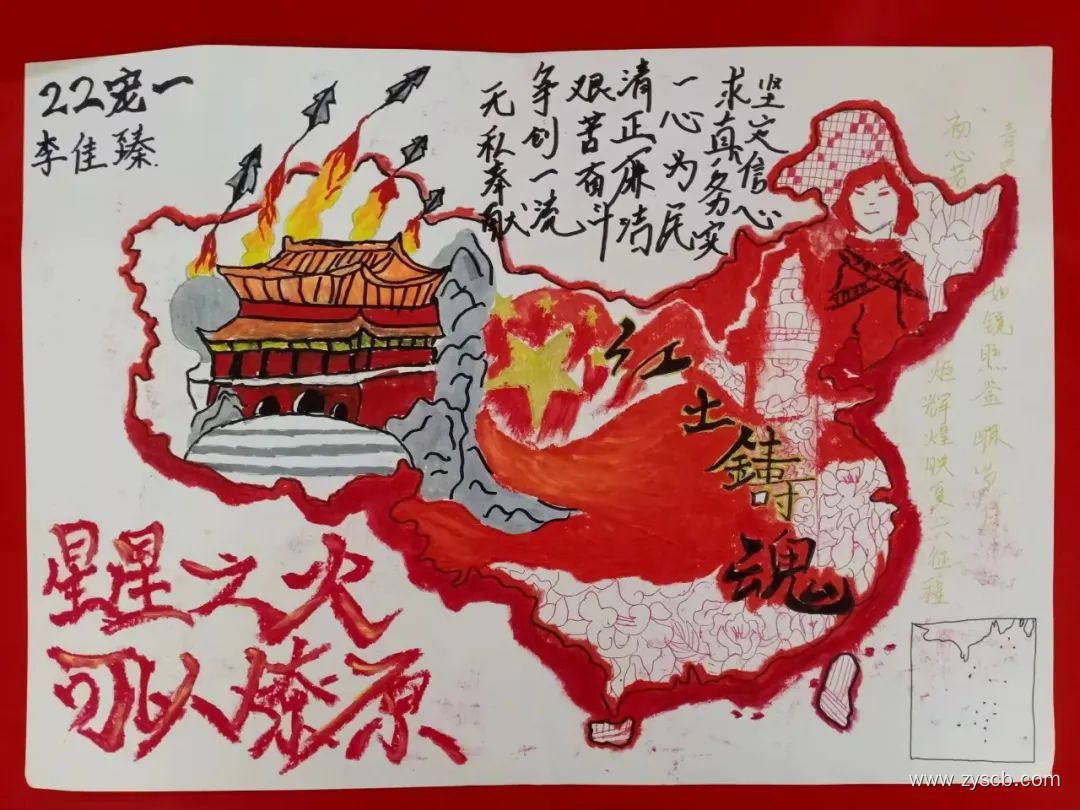 22宠一
李佳臻
坚定信心
求真务实
一心为民
清正廉洁
艰苦奋斗
争创一流
无私奉献
红土鑄魂
初心者
如镜照鉴
炬辉煌映复兴征程
星星之火
可以燎原
www.zyscb.com